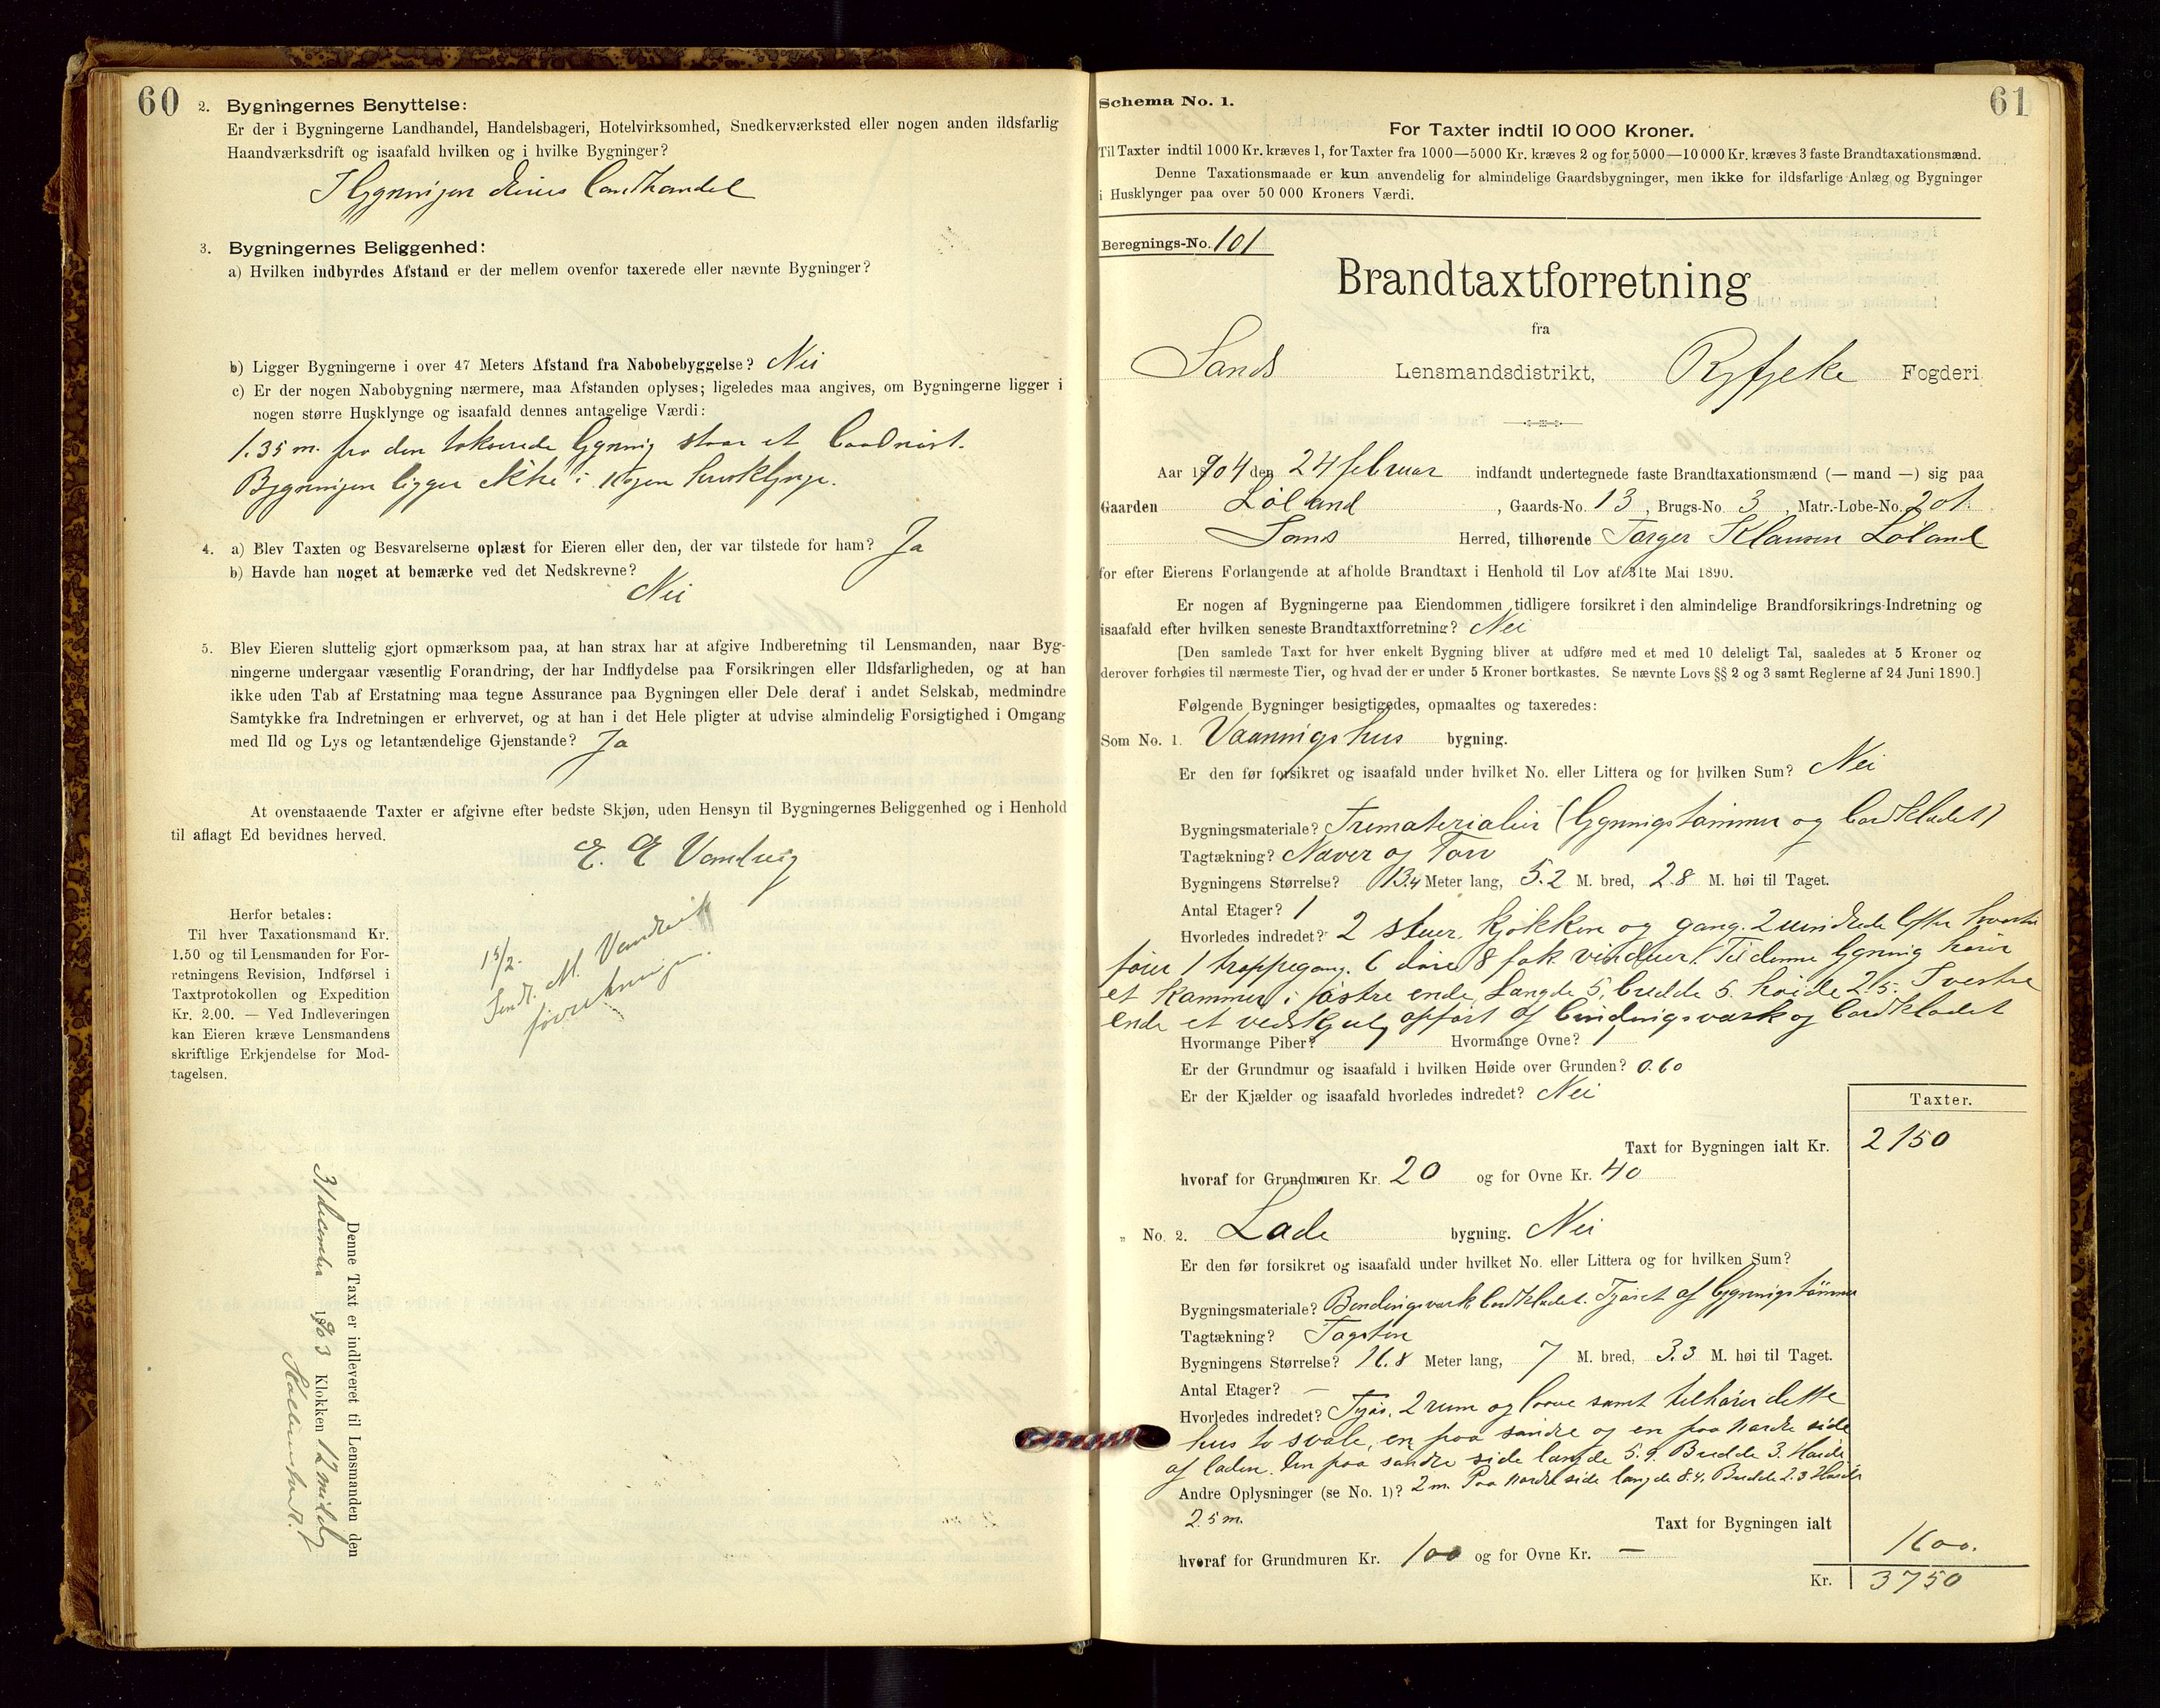 60
2. Bygningernes Benyttelse:
Er der i Bygningerne Landhandel, Handelsbageri, Hotelvirksomhed, Snedkerværksted eller nogen anden ildsfarlig
Haandværksdrift og isaafald hvilken og i hvilke Bygninger?
I bygningen drives landhandel
3. Bygningernes Beliggenhed:
a) Hvilken indbyrdes Afstand er der mellem ovenfor taxerede eller nævnte Bygninger?
b) Ligger Bygningerne i over 47 Meters Afstand fra Nabobebyggelse? Nei
c) Er der nogen Nabobygning nærmere, maa Afstanden oplyses; ligeledes maa angives, om Bygningerne ligger i
nogen større Husklynge og isaafald dennes antagelige Værdi:
1.35 m. fra den takserede bygning staar et baadnøst.
Bygningen ligger ikke i nogen husklynge.
4. a) Blev Taxten og Besvarelserne oplæst for Eieren eller den, der var tilstede for ham? Ja
b) Havde han noget at bemærke ved det Nedskrevne?
Nei
5. Blev Eieren sluttelig gjort opmærksom paa, at han strax har at afgive Indberetning til Lensmanden, naar Byg-
ningerne undergaar væsentlig Forandring, der har Indflydelse paa Forsikringen eller Ildsfarligheden, og at han
ikke uden Tab af Erstatning maa tegne Assurance paa Bygningen eller Dele deraf i andet Selskab, medmindre
Samtykke fra Indretningen er erhvervet, og at han i det Hele pligter at udvise almindelig Forsigtighed i Omgang
med Ild og Lys og letantændelige Gjenstande? Ja
At ovenstaaende Taxter er afgivne efter bedste Skjøn, uden Hensyn til Bygningernes Beliggenhed og i Henhold
til aflagt Ed bevidnes herved.
E. E Vandvig
Herfor betales:
Til hver Taxationsmand Kr.
1.50 og til Lensmanden for For-
retningens Revision, Indførsel i
Taxtprotokollen og Expedition
Kr. 2.00. — Ved Indleveringen
kan Eieren kræve Lensmandens
skriftlige Erkjendelse for Mod-
tagelsen.
15/2.
Sendt. M. Vandvik
forretningen.
Denne Taxt er indleveret til Lensmanden den
31 december 1903 Klokken 12 middg
61
Schema No. 1.
For Taxter indtil 10 000 Kroner.
Til Taxter indtil 1000 Kr. kræves 1, for Taxter fra 1000—5000 Kr. kræves 2 og for 5000—10 000 Kr. kræves 3 faste Brandtaxationsmænd.
Denne Taxationsmaade er kun anvendelig for almindelige Gaardsbygninger, men ikke for ildsfarlige Anlæg og Bygninger
i Husklynger paa over 50 000 Kroners Værdi.
Beregnings-No. 101
Brandtaxtforretning
fra
Sands Lensmandsdistrikt, Ryfylke Fogderi
Aar 1904 den 24 februar indfandt undertegnede faste Brandtaxationsmænd (— mand —) sig paa
Gaarden Løland, Gaards-No. 13, Brugs-No. 3, Matr.-Løbe-No. 201.
Sands Herred, tilhørende Torger Klausen Løland
for efter Eierens Forlangende at afholde Brandtaxt i Henhold til Lov af 31te Mai 1890.
Er nogen af Bygningerne paa Eiendommen tidligere forsikret i den almindelige Brandforsikrings-Indretning og
isaafald efter hvilken seneste Brandtaxtforretning? Nei
[Den samlede Taxt for hver enkelt Bygning bliver at udføre med et med 10 deleligt Tal, saaledes at 5 Kroner og
derover forhøies til nærmeste Tier, og hvad der er under 5 Kroner bortkastes. Se nævnte Lovs §§ 2 og 3 samt Reglerne af 24 Juni 1890.]
Følgende Bygninger besigtigedes, opmaaltes og taxeredes:
Som No. 1. Vaaningshus bygning.
Er den før forsikret og isaafald under hvilket No. eller Littera og for hvilken Sum? Nei
Bygningsmateriale? Trematerialier (bygningstømmer og bordklædet)
Tagtækning? Næver og Torv
Bygningens Størrelse? 13.4 Meter lang, 5.2 M. bred, 2.8 M. høi til Taget.
Antal Etager? 1
Hvorledes indredet? 2 stuer, kjøkken og gang. 2 uindrede lofter hvortil
fører 1 trappegang. 6 døre 8 fak vinduer. Til denne bygning hører
et kammer i østre ende, længde 5, bredde 5. høide 2.5. I vestre
ende et vedskjul, opført af bindingsværk og bordklædet
Hvormange Piber? 1 Hvormange Ovne? 1
Er der Grundmur og isaafald i hvilken Høide over Grunden? 0.60
Er der Kjælder og isaafald hvorledes indredet? Nei
Taxter.
Taxt for Bygningen ialt Kr. 2150
hvoraf for Grundmuren Kr. 20 og for Ovne Kr. 40
„ No. 2. Lade bygning. Nei
Er den før forsikret og isaafald under hvilket No. eller Littera og for hvilken Sum?
Bygningsmateriale? Bendingsværk, bordklædet. Fjøset af bygningstømmer
Tagtækning? Tagsten
Bygningens Størrelse? 16.8 Meter lang, 7 M. bred, 3.3 M. høi til Taget.
Antal Etager? —
Hvorledes indredet? Fjøs, 2 rum og loove samt tilhører dette
hus to svale, en paa søndre og en paa nordre side
af laden. Den paa søndre side længde 5.9. Bredde 3. Høide
Andre Oplysninger (se No. 1)? 2 m. Paa nordre side længde 8.4. Bredde 2.3 Høide
2.5 m.
Taxt for Bygningen ialt 1600.
hvoraf for Grundmuren Kr. 100 og for Ovne Kr. —
Kr. 3750